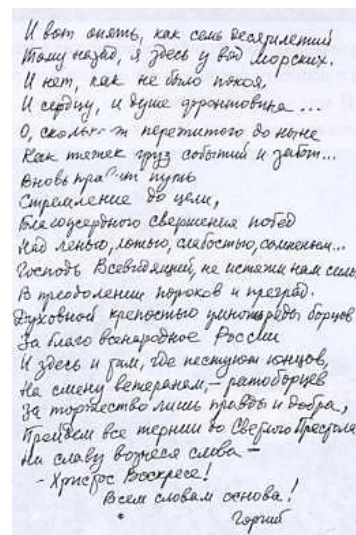 И вот опять, как семь десятилетий
Тому назад, я здесь у вод морских.
И нет, как не было покоя,
И сердцу, и душе фронтовика ...
О, пережитого до ныне
Как тяжек груз событий и забот...
Вновь путь
Стремление до цели,
свершения побед
Над ленью, ложью, слабостью, сомненьем...
Господь Всевидящий, не нам силы
В преодолении пороков и преград.
Духовной крепостью ряды борцов
За благо всенародное России
И здесь и там, где пестуют юнцов,
На смену ветеранам, – ратоборцев
За торжество лишь правды и добра,
Пройдем все тернии до Светлого Престола
На славу вознеся слова –
- Христос Воскресе!
Всем словам основа!